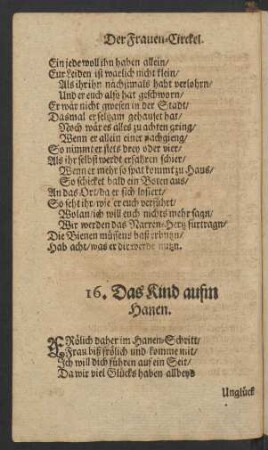 Der Frauen-Circkel.
Ein jede woll ihn haben allein/
Eur Leiden ist waelich nicht klein/
Als ihr ihn nächstmals habt verlohrn/
Und er euch also hat geschworn/
Er wär nicht gwesen in der Stadt/
Dasmal er seltzam gehauset hat/
Noch wär es alles zu achten gring/
Wenn er allein einer nachgieng/
So nimmt er stets drey oder vier/
Als ihr selbst werdt erfahren schier/
Wenn er mehr so spat kommt zu Haus/
So schicket bald ein Boten aus/
An das Ort/ da er sich losiert/
So seht ihr/ wie er euch verführt/
Wolan/ ich will euch nichts mehr sagn/
Wir werden das Narren-Hertz fürtragn/
Die Bienen müssens baß
Hab acht/ was er dir werde nutzn.
16. Das Kind aufm
Hanen.
FRölich daher im Hanen-Schritt/
Frau biß frölich und komme mit/
Ich will dich führen auf ein Seit/
Da wir viel Glücks haben allbeyd
Unglück